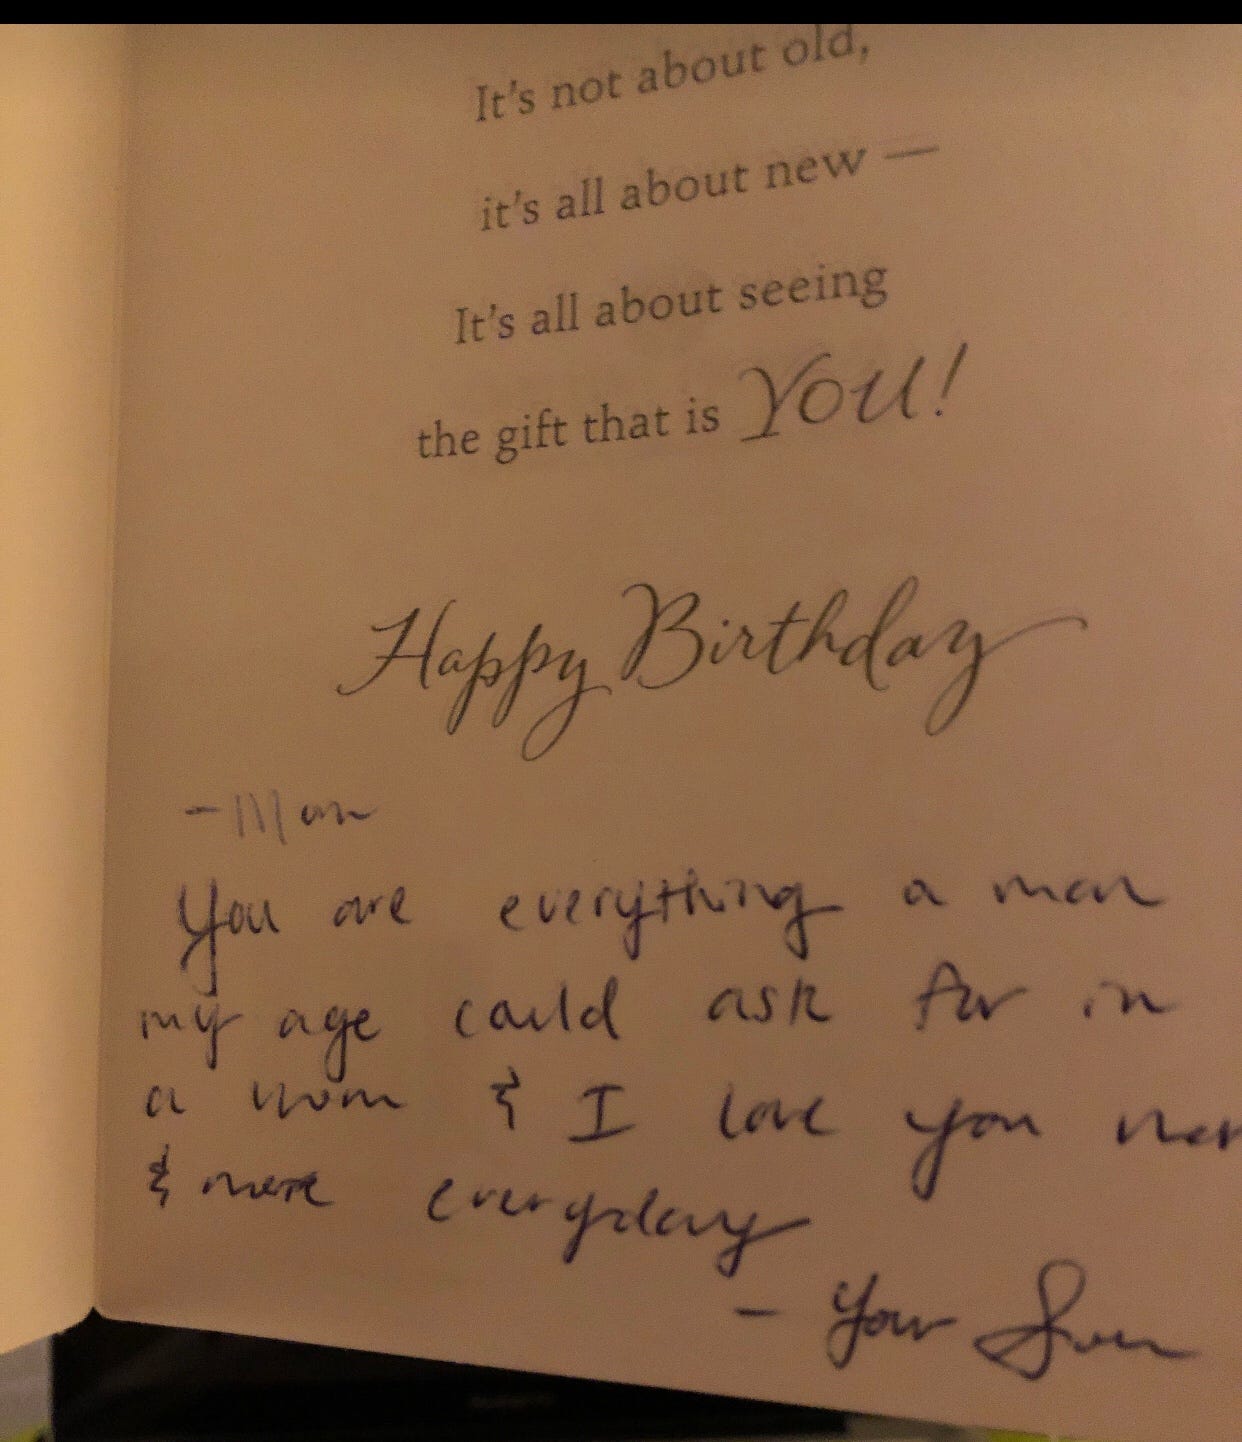 It's not about old,
it's all about new —
It's all about seeing
the gift that is YOU!
Happy Birthday
- Mom
You are everything a man
my age could ask for in
a mom & I love you mor
& more everyday
- Your Son